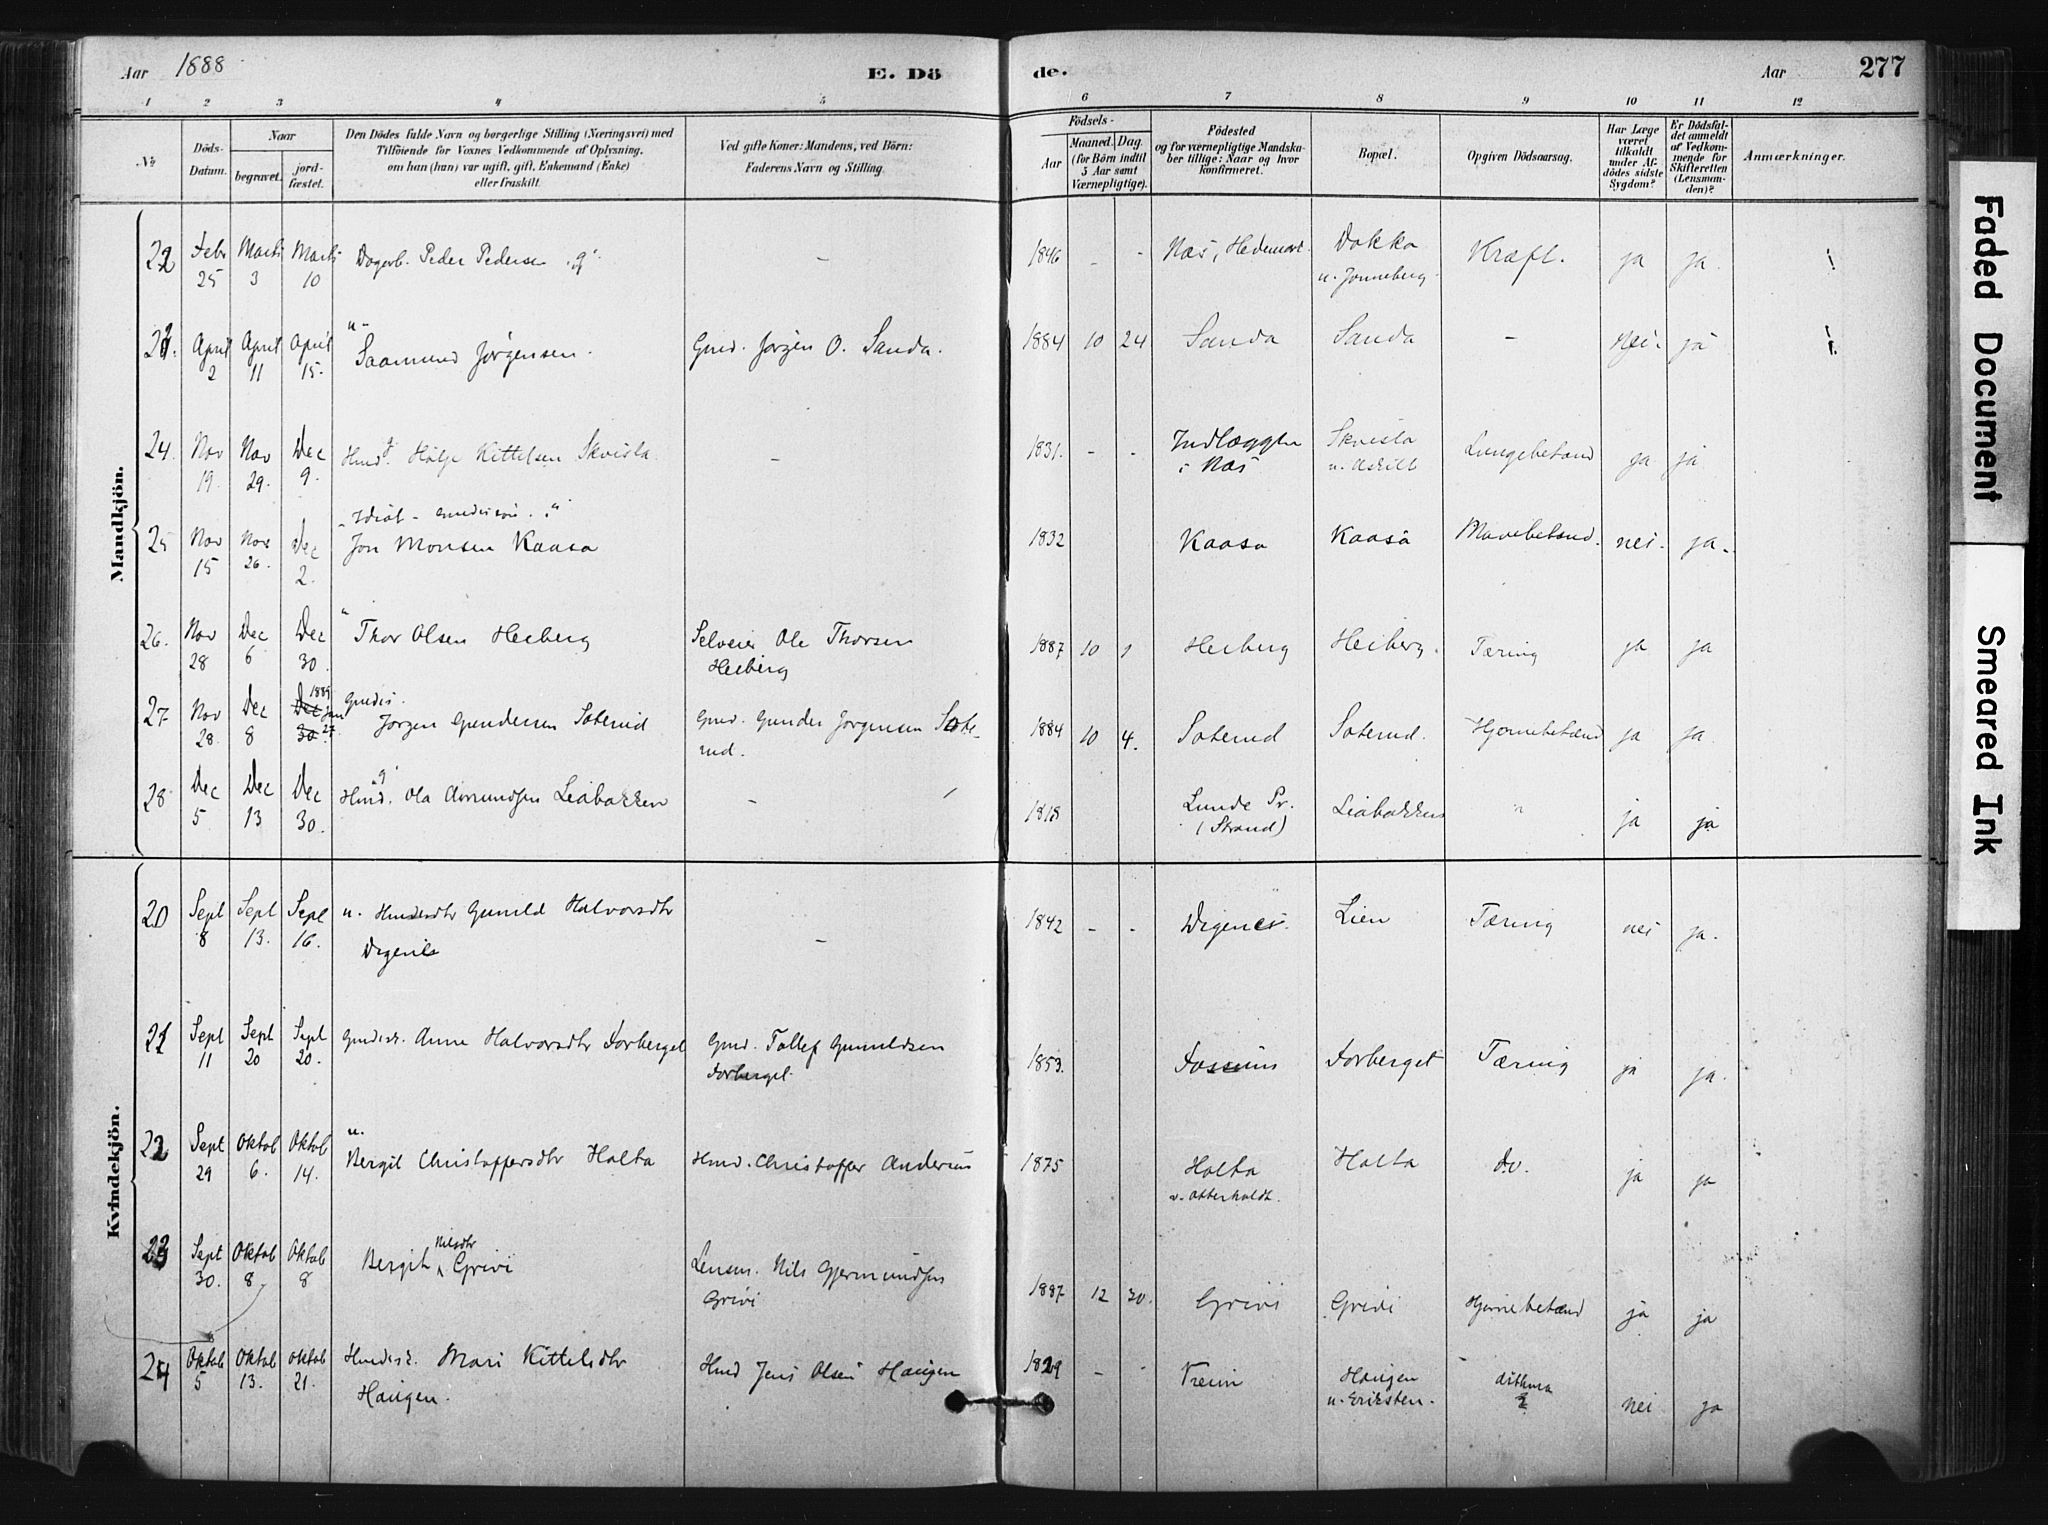 Aar 1888 E. Dö de. Aar 277
1 2 3 4 5 6 7 8 9 10 11 12
No
Döds-Datum.
Naar
begravet.
jord-fæstet.
Den Dödes fulde Navn og borgerlige Stilling (Næringsvei) med
Tilföiende for Voxnes Vedkommende af Oplysning.
om han (hun) var ugift, gift, Enkemand (Enke)
eller fraskilt.
Ved gifte Koner: Mandens, ved Börn:
Faderens Navn og Stilling.
Födsels-
Aar
Maaned. Dag.
(for Börn indtil
5 Aar samt
Værnepligtige).
Födested
og for værnepligtige Mandska-
ber tillige: Naar og hvor
konfirmeret.
Bopæl.
Opgiven Dödsaarsag.
Har Læge
været
tilkaldt
under Af-
dödes sidste
Sygdom?
Er Dödsfal-
det anmeldt
af Vedkom-
mende for
Skifteretten
(Lensman-
den)?
Anmærkninger.
Mandkjön.
22 Febr 25 Marts 3 Marts 10 Dagarb. Peder Pedersen "g" – 1846 - - Næs, Hedemark Dokka u. Jønneberg Kræft. ja ja !
23. April 2 April 11 April 15. "u" Saamund Jørgensen. Gmd. Jørgen O. Sanda. 1884 10 24 Sanda Sanda – Nei. ja !
24. Nov 19. Nov 29. Dec 9. Hmd. g Hølje Kittelsen Skvisla. – 1831. - - Indlæggen i Næs Skvisla Lungebetænd ja ja
25 Nov 15 Nov 26. Dec 2. "Idiot - " Jon Monsen Kaasa 1832 Kaasa Kaasa Mavebetænd. nei. ja.
26. Nov 28 Dec 6 Dec 30. " Thor Olsen Heiberg Selveier Ole Thorsen Heiberg 1887 10 1 Heiberg Heiberg. Tæring ja ja
27. Nov 28. Dec 8 Dec 30 1889 Jan 27. Gmds. Jørgen Gundersen Soterud Gmd. Gunder Jørgensen Soterud. 1884 10 4. Soterud Soterud. Hjernebetænd ja ja.
28. Dec 5 Dec 13 Dec 30. Hmd. "g" Ola Amundsen Liabakken – 1818 Lunde Pr. (Strand) Liabakken " ja ja
Kvindekjön.
20 Sept 8 Sept 13. Sept 16. u. Gunild Halvorsdtr Digenes – 1842 - - Digenes. Lien Tæring nei ja.
21 Sept 11 Sept 20 Sept 20. Anne Halvorsdtr Torberget Gmd. Tollef Gunuldsen Torberget. 1853. Torberget Tæring ja ja.
22 Sept 29 Oktob 6. Oktob 14. u. Bergit Christoffersdtr Holta Hmd. Christoffer Andersen 1875 Holta u. Otterholdt. Holta do. ja ja
23 Sept 30. Oktob 8 Oktob 8 Bergit Nilsdtr Grivi Lensm. Nils Gjermundsen Grivi 1887 12 30. Grivi Grivi Hjernebetænd ja ja
24 Oktob 5 Oktob 13. Oktob 21. Mari Kittelsdtr Haugen. Hmd Jens Olsen Haugen 1829 - - Vreim Haugen u. Eriksten. Asthma nei ja
Faded Document
Smeared Ink